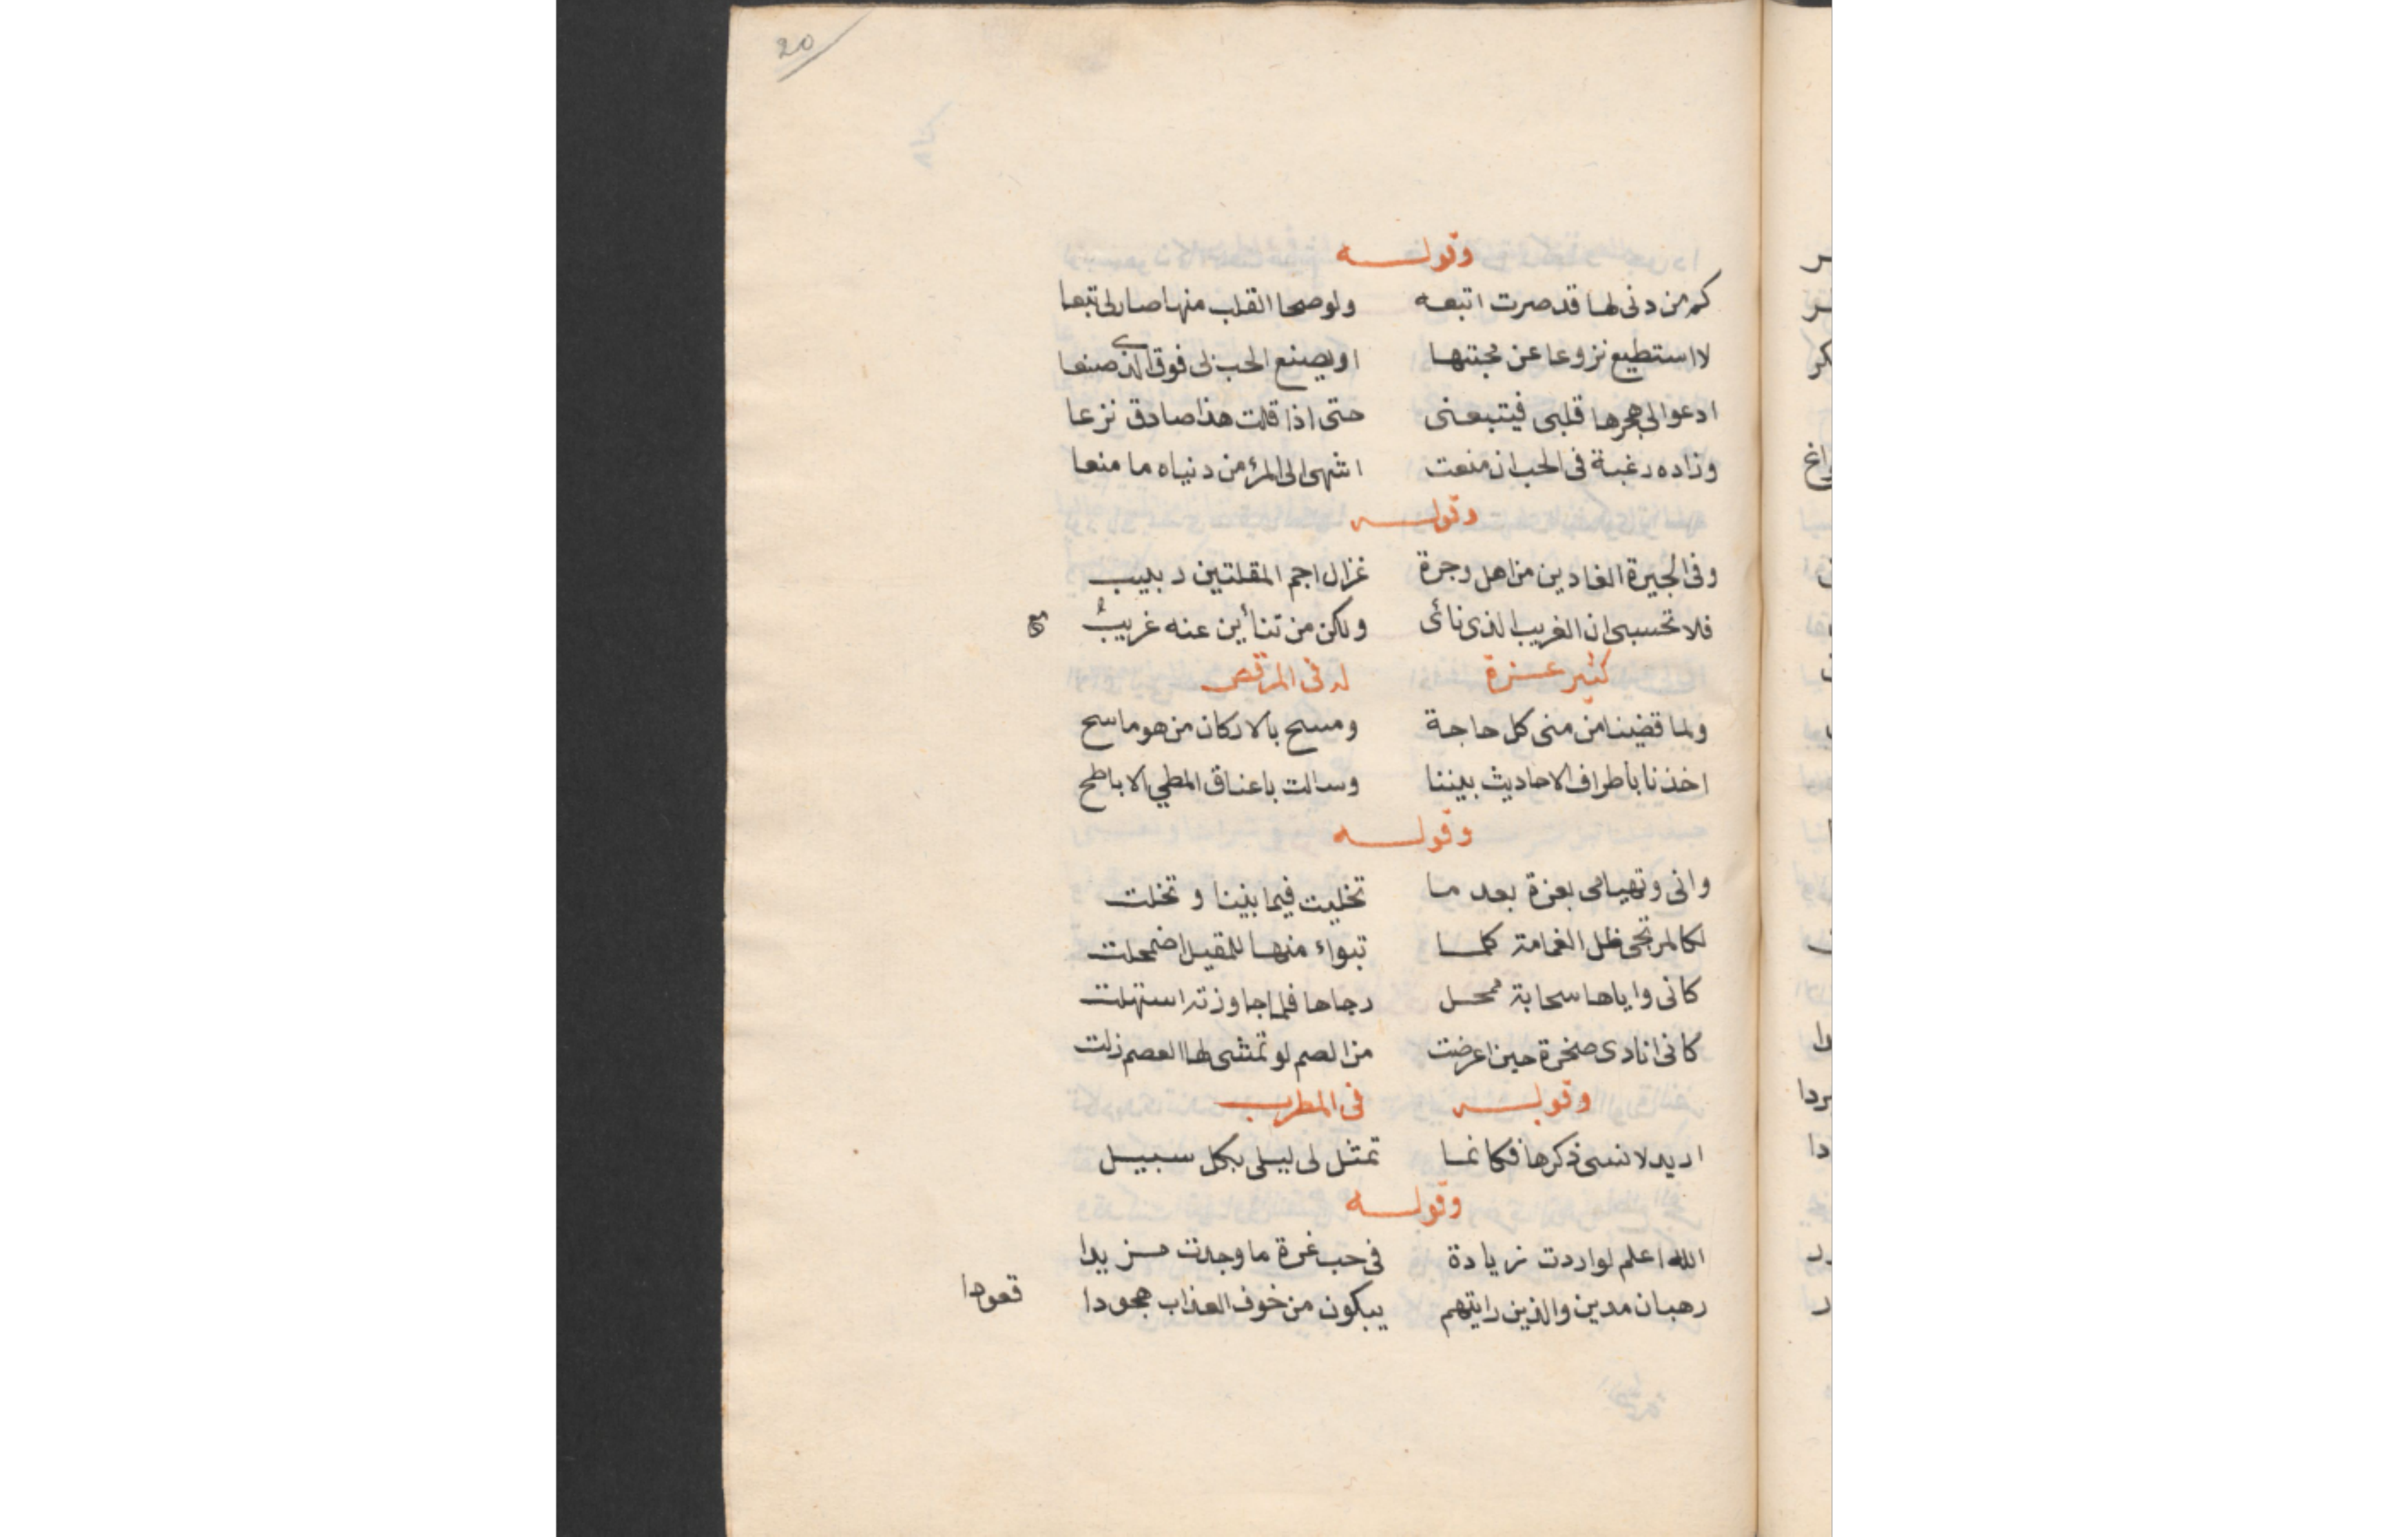 20
وقوله
كم من دنى لها قد صرت اتبعه ولو صحا القلب منها صار لى تبعا
لا استطيع نزوعا عن محبتها او يصنع الحب لى فوق الذى صنعا
ادعو الى هجرها قلبى فيتبعنى حتى اذا قلت هذا صادق نزعا
وزاده رغبة فى الحب ان منعت اشهى الى المرء من دنياه ما منعا
وقوله
وفى الجيرة الغادين من اهل وجرة غزال اجم المقلتين ربيب
فلا تحسبى ان الغريب الذى نائى ولكن من تنأين عنه غريبُ
كثير عزة له فى المرقص
ولما قضينا من منى كل حاجة ومسح بالاركان من هو ماسح
اخذنا باطراف الاحاديث بيننا وسالت باعناق المطي الاباطح
وقوله
وانى وتهيامى بعزة بعد ما تخليت فيما بيننا وتخلت
لكالمرتجى ظل الغمامة كلما تبواء منها للمقيل اضمحلت
كانى واياها سحابة ممحل رجاها فلما جاوزته استهلت
كانى انادى صخرة حين اعرضت من الصم لو تمشى لها العصم زلت
وقوله فى المطرب
اريد لانسى ذكرها فكانما تمثل لى ليلى بكل سبيل
وقوله
الله اعلم لو اردت زيادة فى حب غرة ما وجدت مزيدا
رهبان مدين والذين رايتهم يبكون من خوف العذاب هجودا قعودا